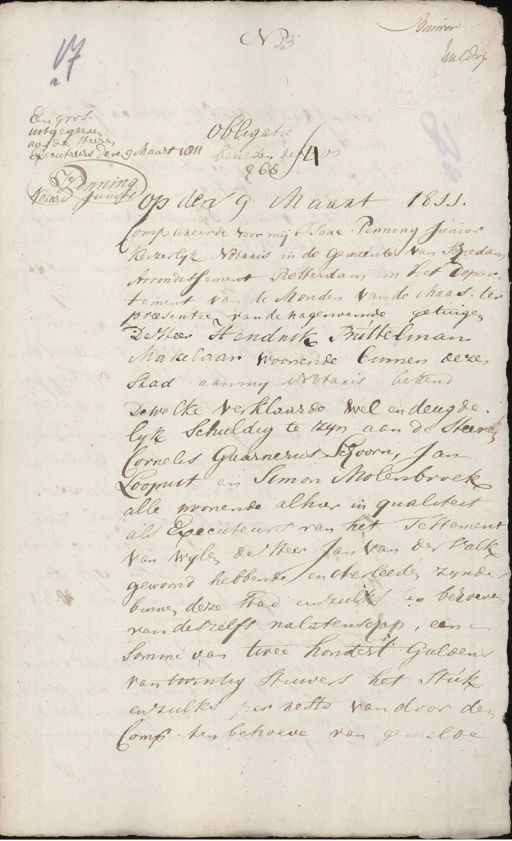 17
N 23
Engros.
uitgegeven
aan de Heeren
Executeurs den 9 Maart 1811
Penning
Junior
Obligatie
beneden de
868
Op den 9 Maart 1811.
Compareerde voor mij Isaac Penning Junior
Keizerlijk Notaris in de Gemeente van Schiedam
Arrondissement Rotterdam in het Depar-
tement van de Monden van de Maas. ter
præsentie van de nagenoemde getuigen
De Heer Hendrik Brüttelman
Makelaar woonende binnen deze
Stad aan mij Notaris bekend
Dewelke verklaarde wel en deugde-
lijk Schuldig te zijn aan de Heeren
Cornelis Guarnerus Schoorn, Jan
Loopuit en Simon Molenbroek
alle woonende alhier in qualiteit
als Executeurs van het Testament
van wijlen de Heer Jan van der Valk
gewoond hebbende en overleeden zijnde
binnen deze Stad en zulks ten behoeve
van deszelfs nalatenschap, een
Somme van twee hondert Guldens
van twintig Stuivers het Stuk
en zulks per resto van door den
Comp. ten behoeve van gemelde